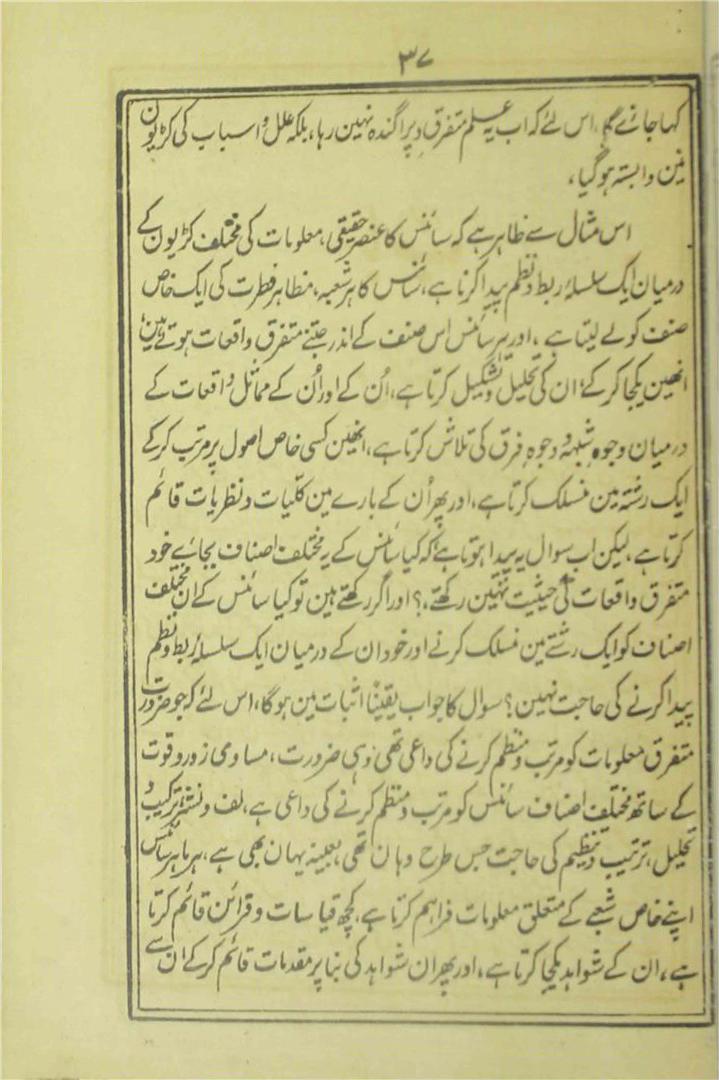 ۳۷
کہا جائے گا، اس لئے کہ اب یہ علم متفرق و پراگندہ نہین رہا، بلکہ علل و اسباب کی کڑیون
مین وابستہ ہو گیا،
اس مثال سے ظاہر ہے کہ سائنس کا عنصر حقیقی، معلومات کی مختلف کڑیون کے
درمیان ایک سلسلۂ ربط و نظم پیدا کرنا ہے، سائنس کا ہر شعبہ، مظاہر فطرت کی ایک خاص
صنف کو لے لیتا ہے، اور ہر سائنس اس صنف کے اندر جتنے متفرق واقعات ہوتے ہین
انھین یکجا کر کے، ان کی تحلیل و تشکیل کرتا ہے، اُن کے اور اُن کے مماثل واقعات کے
درمیان وجوہِ شبہ و وجوہِ فرق کی تلاش کرتا ہے، انھین کسی خاص اصول پر مرتب کر کے
ایک رشتہ مین منسلک کرتا ہے، اور پھر اُن کے بارے مین کلّیات و نظریات قائم
کرتا ہے، لیکن اب سوال یہ پیدا ہوتا ہے کہ کیا سائنس کے یہ مختلف اصناف بجائے خود
متفرق واقعات کی حیثیت نہین رکھتے،؟ اور اگر رکھتے ہین تو کیا سائنس کے ان مختلف
اصناف کو ایک رشتے مین منسلک کرنے اور خود ان کے درمیان ایک سلسلۂ ربط و نظم
پیدا کرنے کی حاجت نہین؟ سوال کا جواب یقیناً اثبات مین ہوگا، اس لئے کہ جو ضرورت
متفرق معلومات کو مرتب و منظم کرنے کی داعی تھی وہی ضرورت، مساوی زور و قوت
کے ساتھ مختلف اصناف سائنس کو مرتب و منظم کرنے کی داعی ہے، لف و نشر، ترکیب و
تحلیل، ترتیب و تنظیم کی حاجت جس طرح وہان تھی، بعینہٖ یہان بھی ہے، ہر ماہر سائنس
اپنے خاص شعبے کے متعلق معلومات فراہم کرتا ہے، کچھ قیاسات و قرائن قائم کرتا
ہے، ان کے شواہد یکجا کرتا ہے، اور پھر ان شواہد کی بنا پر مقدمات قائم کر کے ان سے